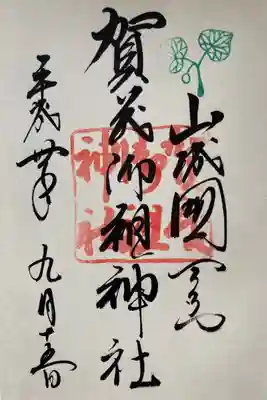 山城國一宮
賀茂御祖神社
平成卅年九月十五日